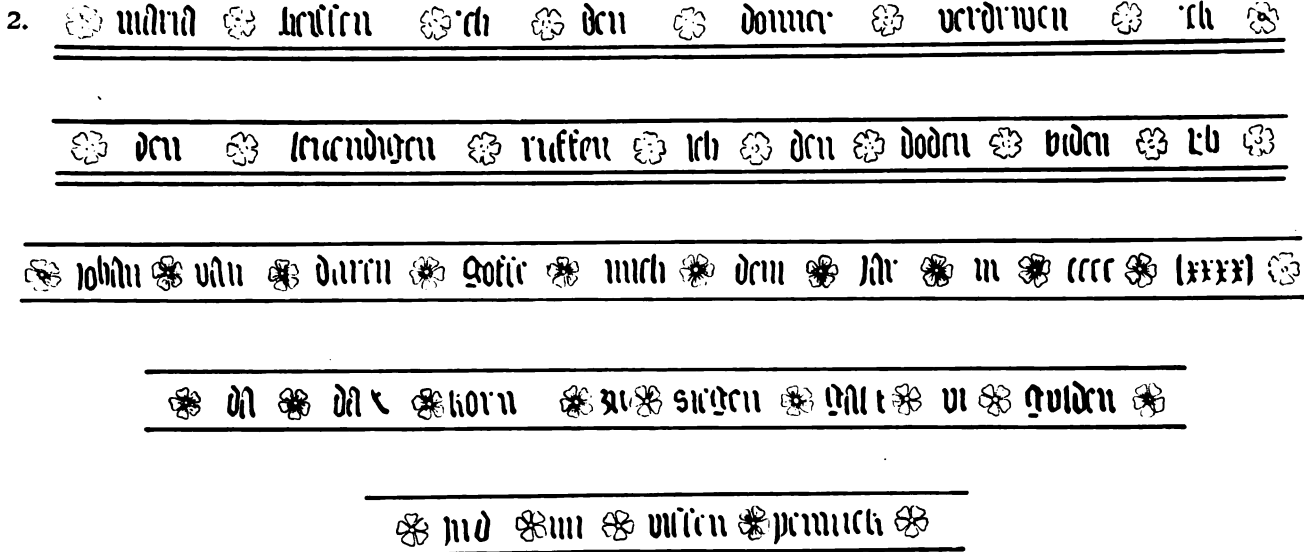 2. maria heissen ich den donner verdriven ich
den levendigen ruffen ich den doden biden ich
Johan van duren gotte mich dem Jar m cccc lxxxxi
da dat korn zu siegen galt vi gulden
und iiii wissen pennick